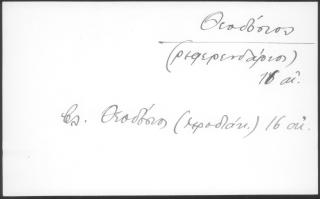 Θεοδόσιος
(ρεφερενδάριος)
16 αἰ.
βλ. Θεοδόσιος (ιεροδιάκ.) 16 αἰ.